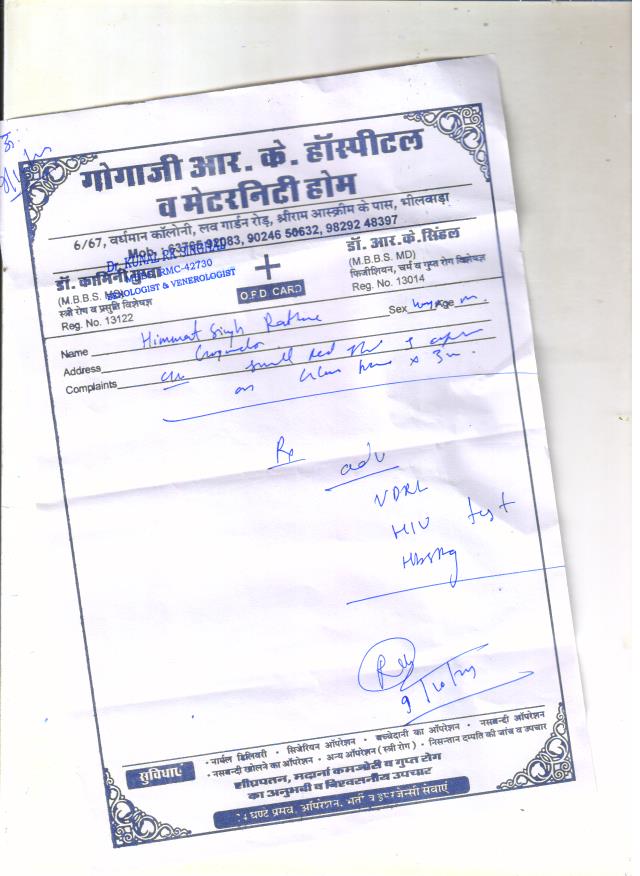 गोगाजी आर. के. हॉस्पीटल
व मेटरनिटी होम
6/67, वर्धमान कॉलोनी, लव गार्डन रोड़, श्रीराम आस्क्रीम के पास, भीलवाड़ा
Mob. : 92083, 90246 50632, 98292 48397
डॉ. कामिनी
(M.B.B.S. MD)
स्त्री रोग व प्रसुति विशेषज्ञ
Reg. No. 13122
Dr. KUNAL
RMC-42730
SEXOLOGIST & VENEROLOGIST
O.P.D CARD
डॉ. आर.के.सिंहल
(M.B.B.S. MD)
फिजीशियन, चर्म व गुप्त रोग विशेषज्ञ
Reg. No. 13014
Name Himmat Singh Sex Age
Address
Complaints small red
on x 3
Rp adv
VDRL
HIV test
HbsAg
9/10/
सुविधाएं
• नार्मल डिलिवरी • सिजेरियन ऑपरेशन • बच्चेदानी का ऑपरेशन • नसबन्दी ऑपरेशन
• नसबन्दी खोलने का ऑपरेशन • अन्य ऑपरेशन (स्त्री रोग) • निसन्तान दम्पति की जांच व उपचार
शीघ्रपतन, मर्दाना कमजोरी व गुप्त रोग
का अनुभवी व विश्वसनीय उपचार
24 घण्टे प्रसव, ऑपरेशन, भर्ती व इमरजेन्सी सेवाएं